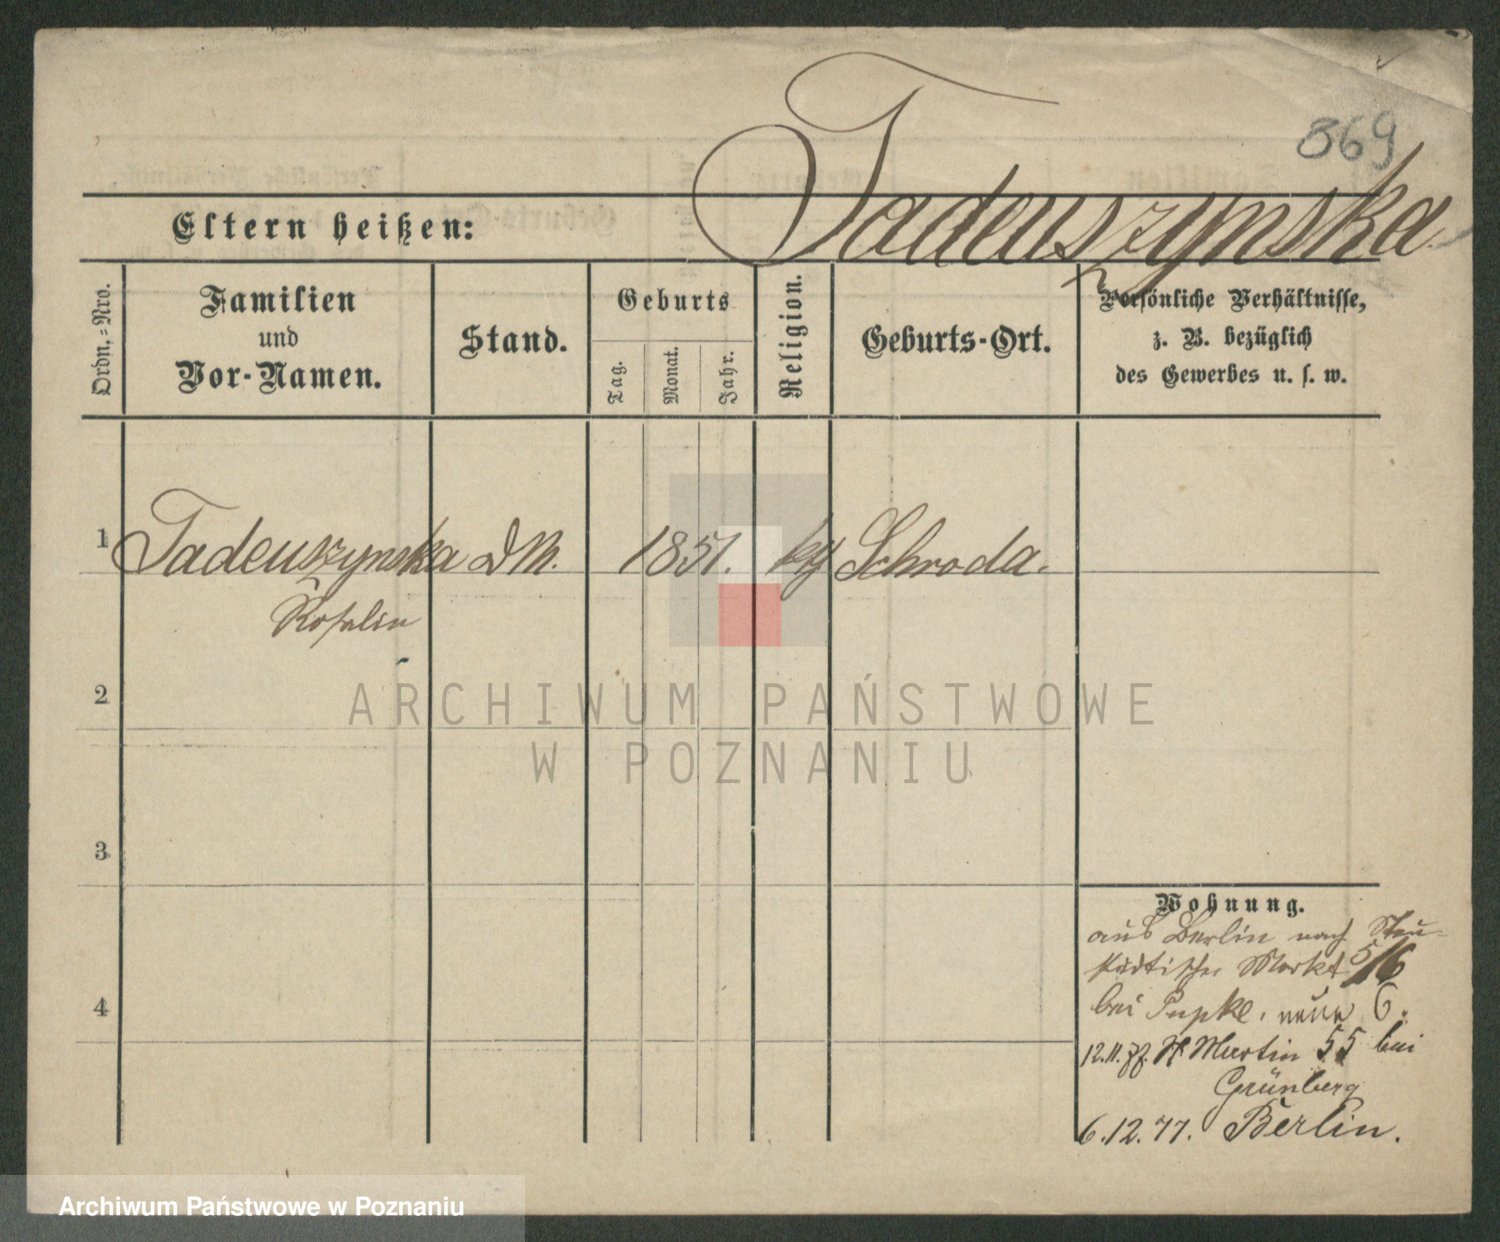 369
Tadeuszynska
Eltern heißen:
Ordn.-Nro.
Familien
und
Vor-Namen.
Stand.
Geburts
Tag.
Monat.
Jahr.
Religion.
Geburts-Ort.
Persönliche Verhältnisse,
z. B. bezüglich
des Gewerbes u. s. w.
1 Tadeuszynska DM. 1851. kth Schroda.
Rosalie
2
ARCHIWUM PAŃSTWOWE
W POZNANIU
3
4
Wohnung.
aus Berlin nach Neu-
städtischer Markt 5/6
bei Pupke. neue 6.
12.11.77. St Martin 55 bei
Grünberg
6.12.77. Berlin.
Archiwum Państwowe w Poznaniu